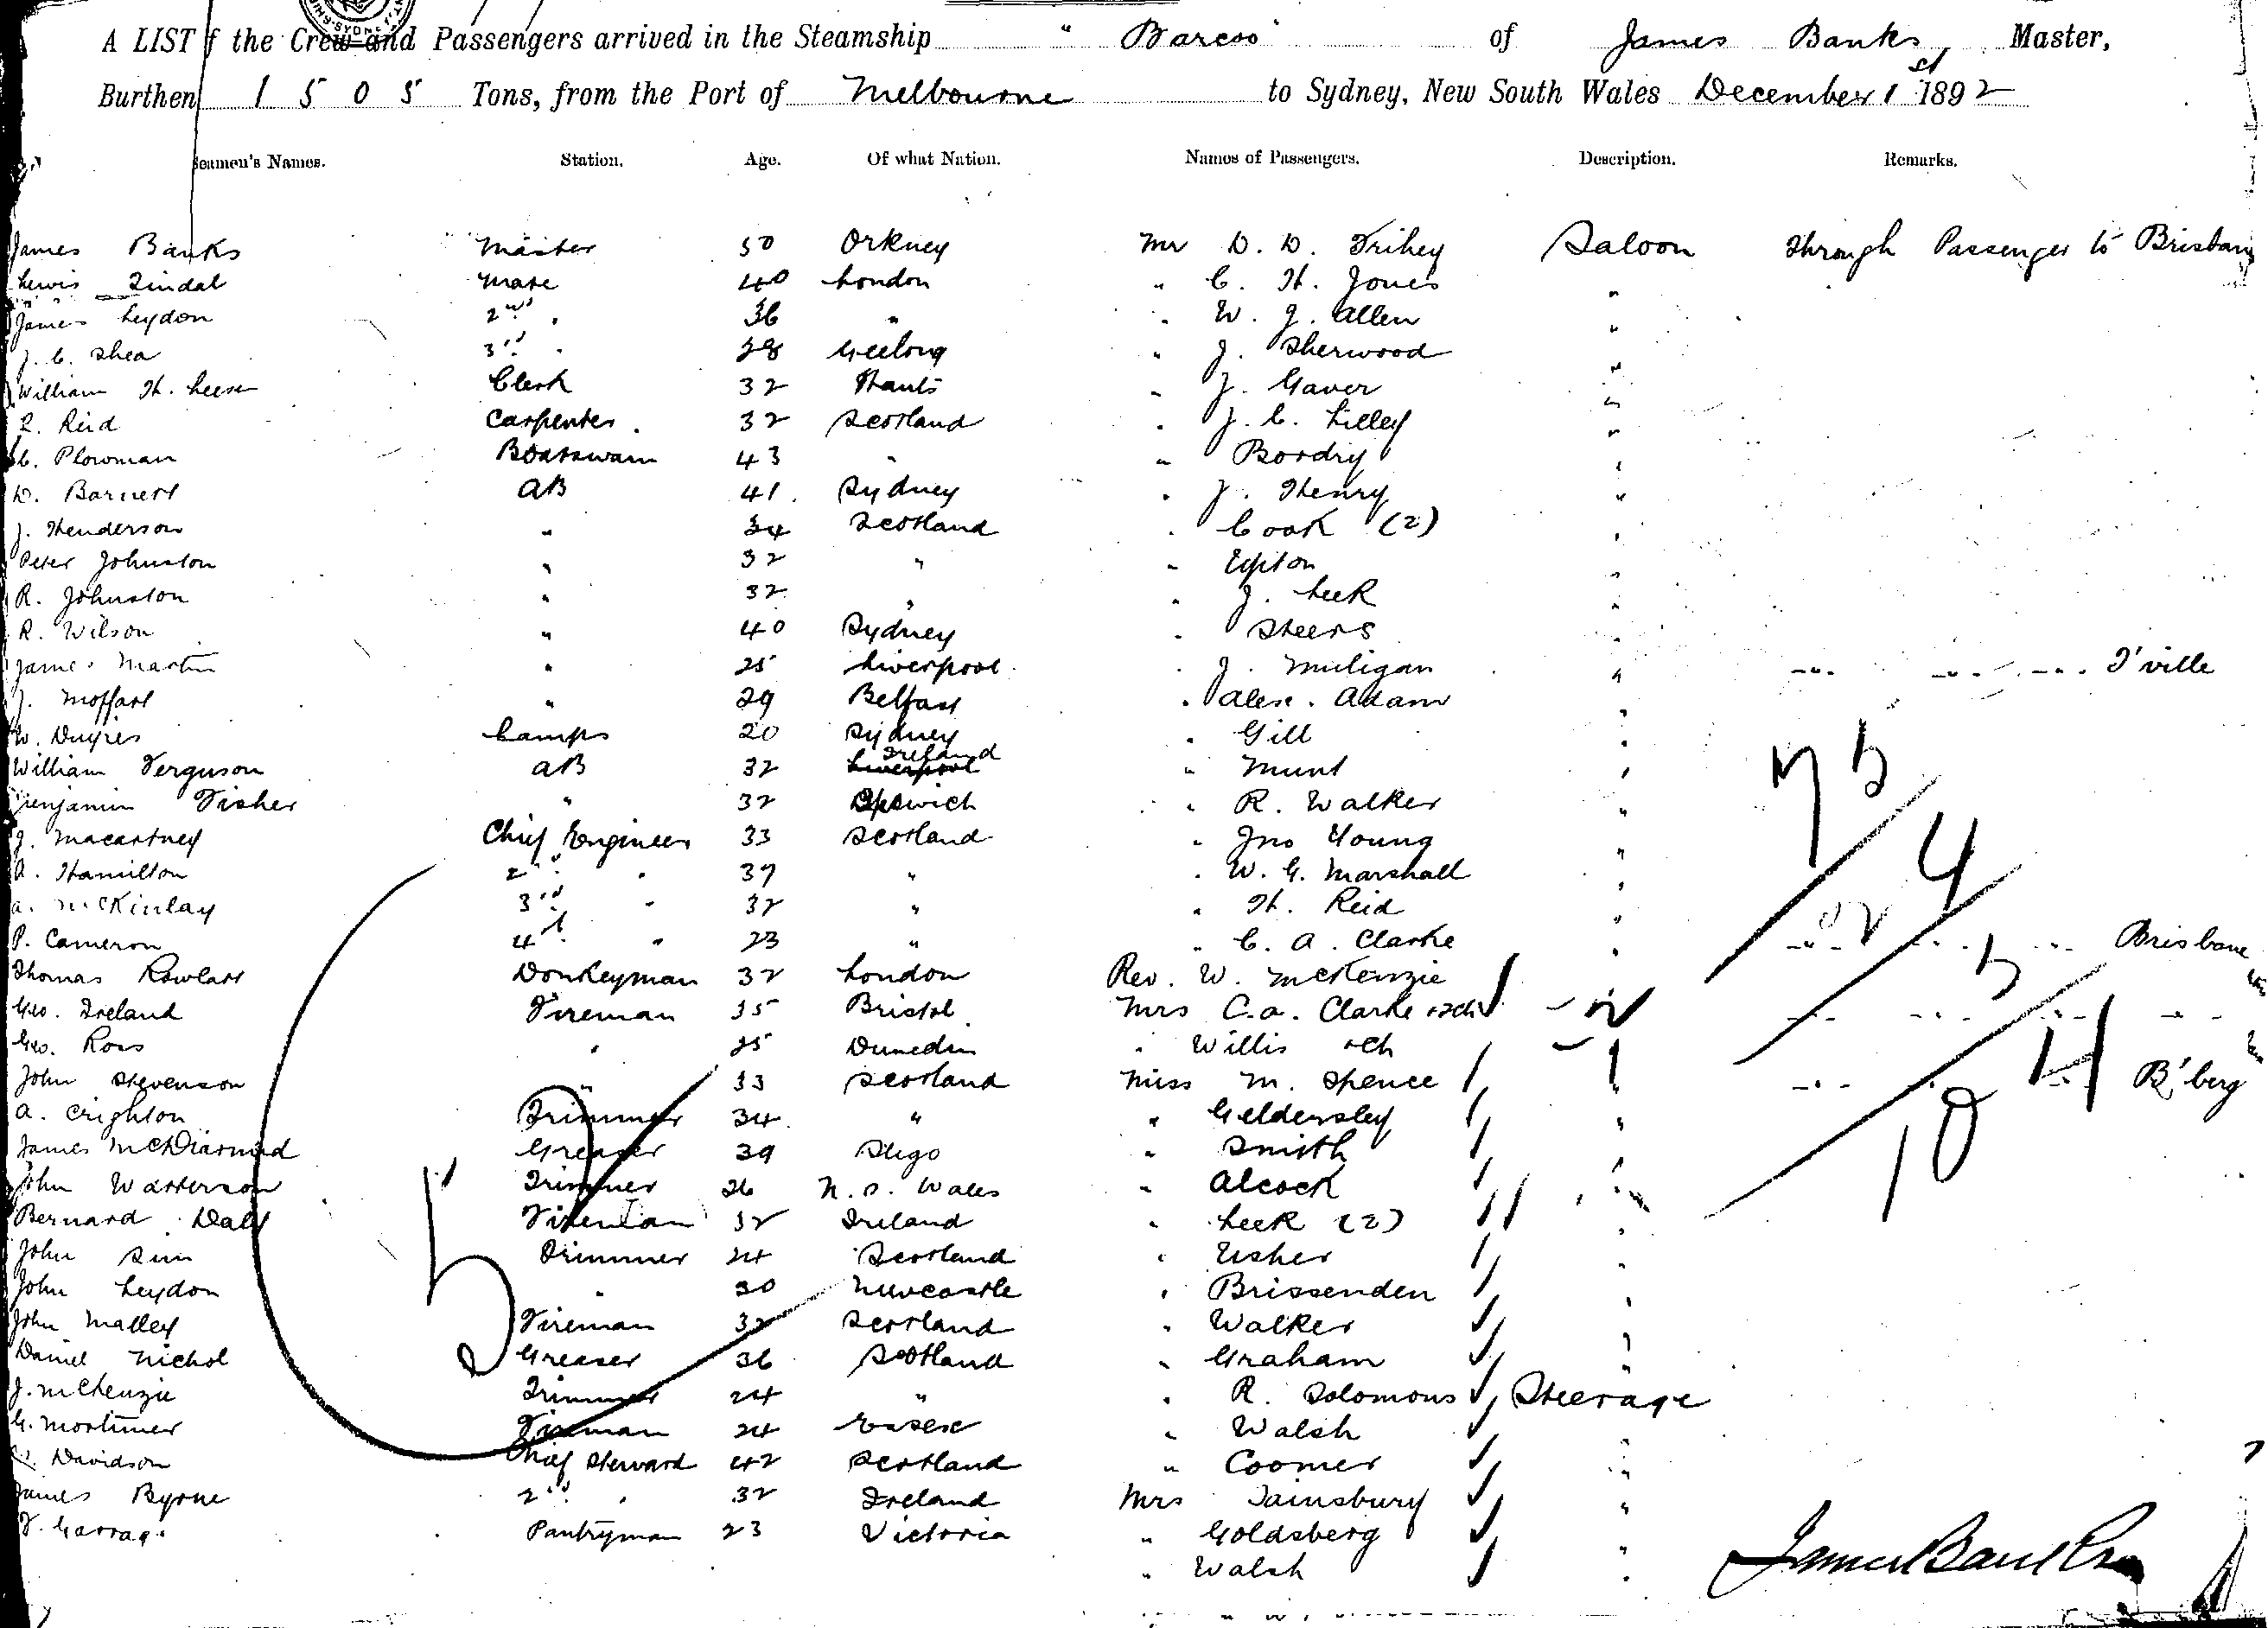 A LIST of the Crew and Passengers arrived in the Steamship "Barcoo" of James Banks, Master,
Burthen 1505 Tons, from the Port of Melbourne to Sydney, New South Wales December 1st 1892
Seamen's Names. Station. Age. Of what Nation. Names of Passengers. Description. Remarks.
James Banks Master 50 Orkney Mr D. D. Trihey Saloon Through Passenger to Brisbane
Lewis Tindal Mate 40 London " C. H. Jones "
James Leydon 2nd " 36 " " W. J. Allen "
J. C. Shea 3rd " 28 Geelong " J. Sherwood "
William H. Leeson Clerk 32 Hants " J. Gaver "
R. Reid Carpenter 32 Scotland " J. C. Lilley "
C. Plowman Boatswain 43 " " Bordry "
D. Barnett AB 41 Sydney " J. Henry "
J. Henderson " 34 Scotland " Cook (2) "
Peter Johnston " 32 " " Upton "
R. Johnston " 32 " " J. Leek "
R. Wilson " 40 Sydney " Steers "
James Martin " 25 Liverpool " J. Muligan " " " " T'ville
J. Moffatt " 29 Belfast " Alex. Adam "
W. Lamps 20 Sydney " Gill "
William Ferguson AB 32 Liverpool Ireland " Munt "
Benjamin Fisher " 32 Ipswich " R. Walker "
J. Macartney Chief Engineer 33 Scotland " Jno Young "
A. Hamilton 2nd " 39 " " W. G. Marshall "
A. McKinlay 3rd " 32 " " H. Reid "
P. Cameron 4th " 23 " " C. A. Clarke " " " " Brisbane
Thomas Rowlatt Donkeyman 32 London Rev. W. McKenzie
Geo. Ireland Fireman 35 Bristol Mrs C. A. Clarke + 2ch " " " "
Geo. Ross " 25 Dunedin " Willis + ch
John Stevenson " 33 Scotland Miss M. Spence " " " B'berg
A. Crighton Trimmer 34 " " Geldersley "
James McDiarmid Greaser 39 Sligo " Smith "
John Watterson Trimmer 26 N. S. Wales " Alcock "
Bernard Daly Fireman 32 Ireland " Leek (2) "
John Sim Trimmer 24 Scotland " Usher "
John Leydon " 30 Newcastle " Brissenden "
John Malley Fireman 32 Scotland " Walker "
Daniel Nichol Greaser 36 Scotland " Graham "
J. McKenzie Trimmer 24 " " R. Solomons Steerage
G. Mortimer Fireman 24 Essex " Walsh "
Davidson Chief Steward 42 Scotland " Coomer "
James Byrne 2nd " 32 Ireland Mrs Sainsbury "
Pantryman 23 Victoria " Goldsberg "
" Walsh "
75
4
5
4
10
5
James Banks